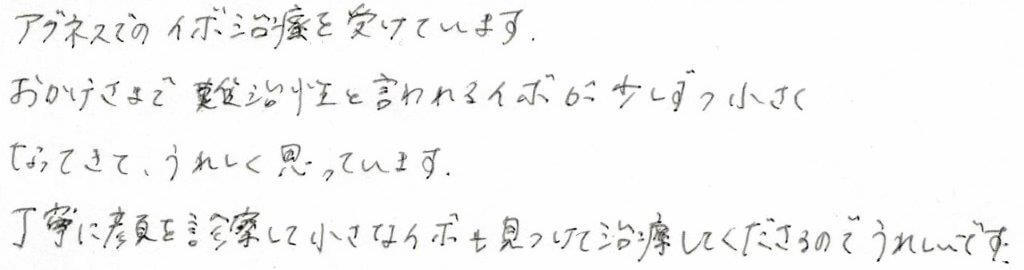 アグネスでのイボ治療を受けています.
おかげさまで難治性と言われるイボが少しずつ小さく
なってきて、うれしく思っています.
丁寧に顔を診察して小さなイボも見つけて治療してくださるのでうれしいです.